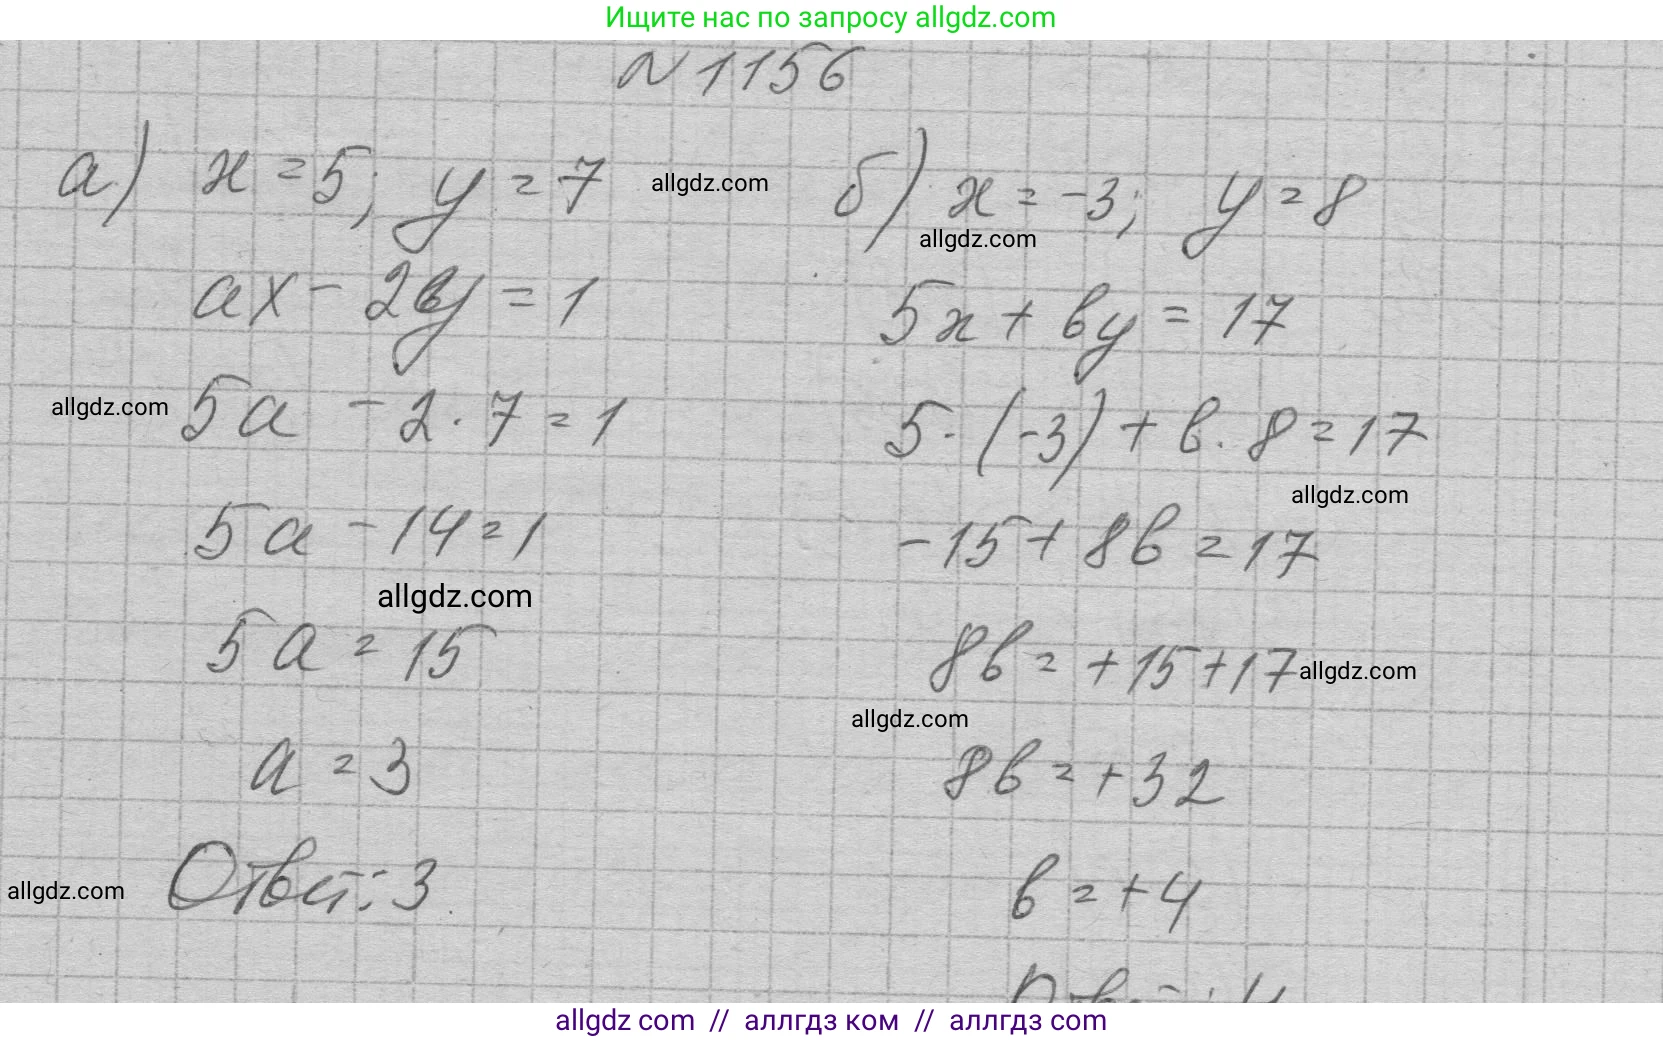 Ищите нас по запросу allgdz.com
№ 1156
а) x = 5; y = 7
allgdz.com
ax - 2y = 1
allgdz.com
5a - 2 · 7 = 1
5a - 14 = 1
allgdz.com
5a = 15
a = 3
allgdz.com
Ответ: 3
б) x = -3; y = 8
allgdz.com
5x + вy = 17
5 · (-3) + в · 8 = 17
allgdz.com
-15 + 8в = 17
8в = +15 + 17
allgdz.com
allgdz.com
8в = +32
в = +4
Ответ: 4
allgdz com // аллгдз ком // аллгдз com